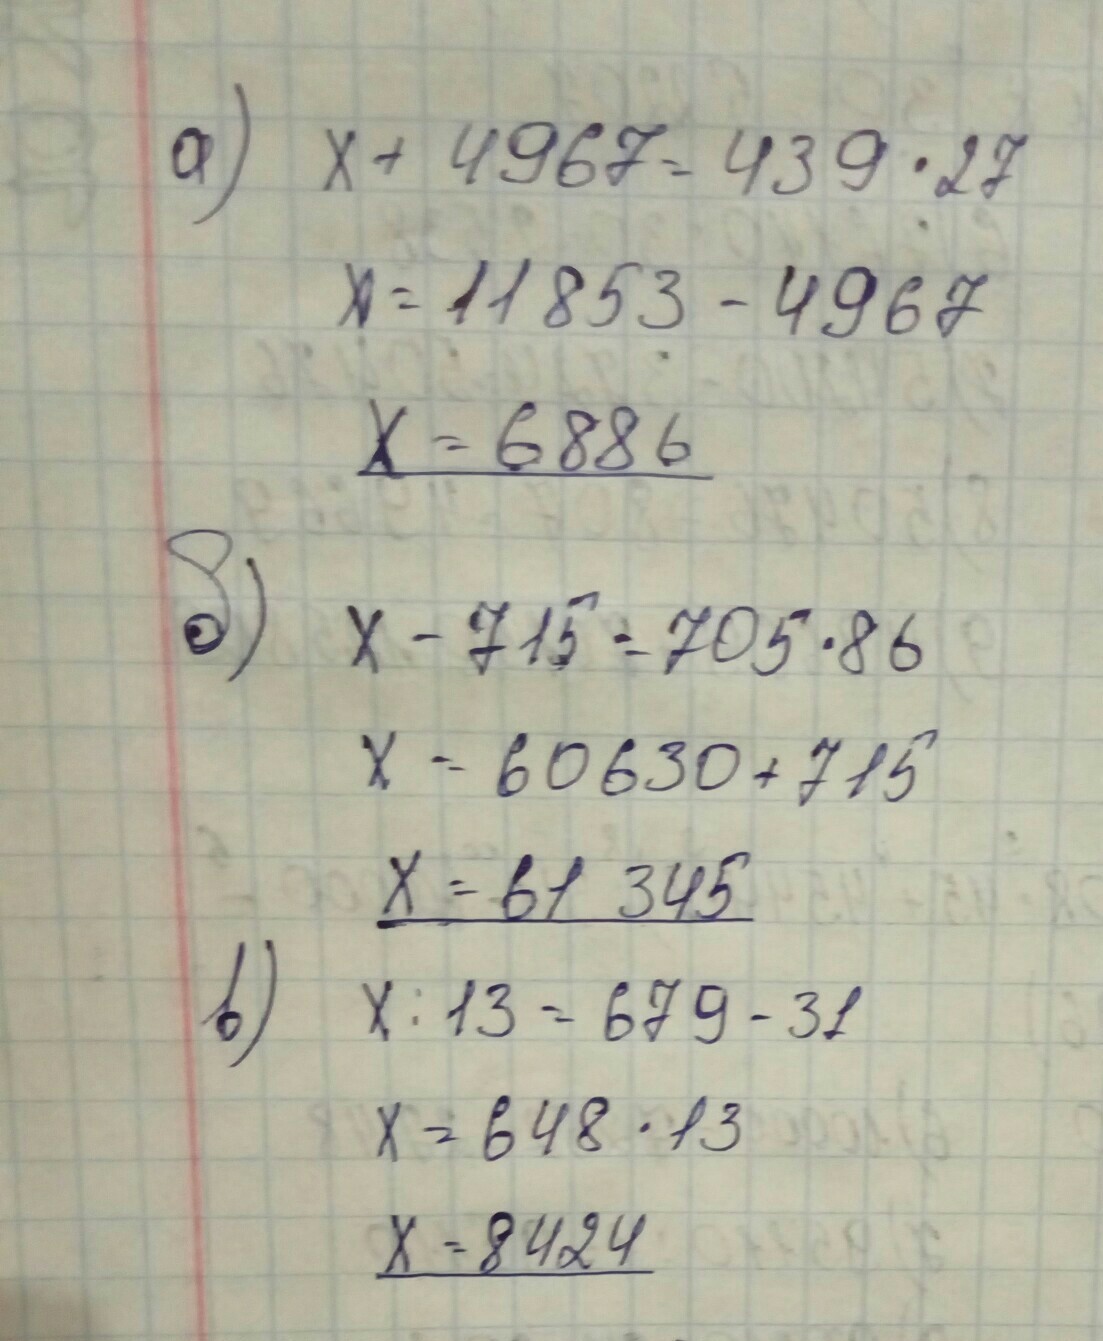 а) x + 4967 = 439 · 27
x = 11853 - 4967
x = 6886
б) x - 715 = 705 · 86
x = 60630 + 715
x = 61 345
в) x : 13 = 679 - 31
x = 648 · 13
x = 8424